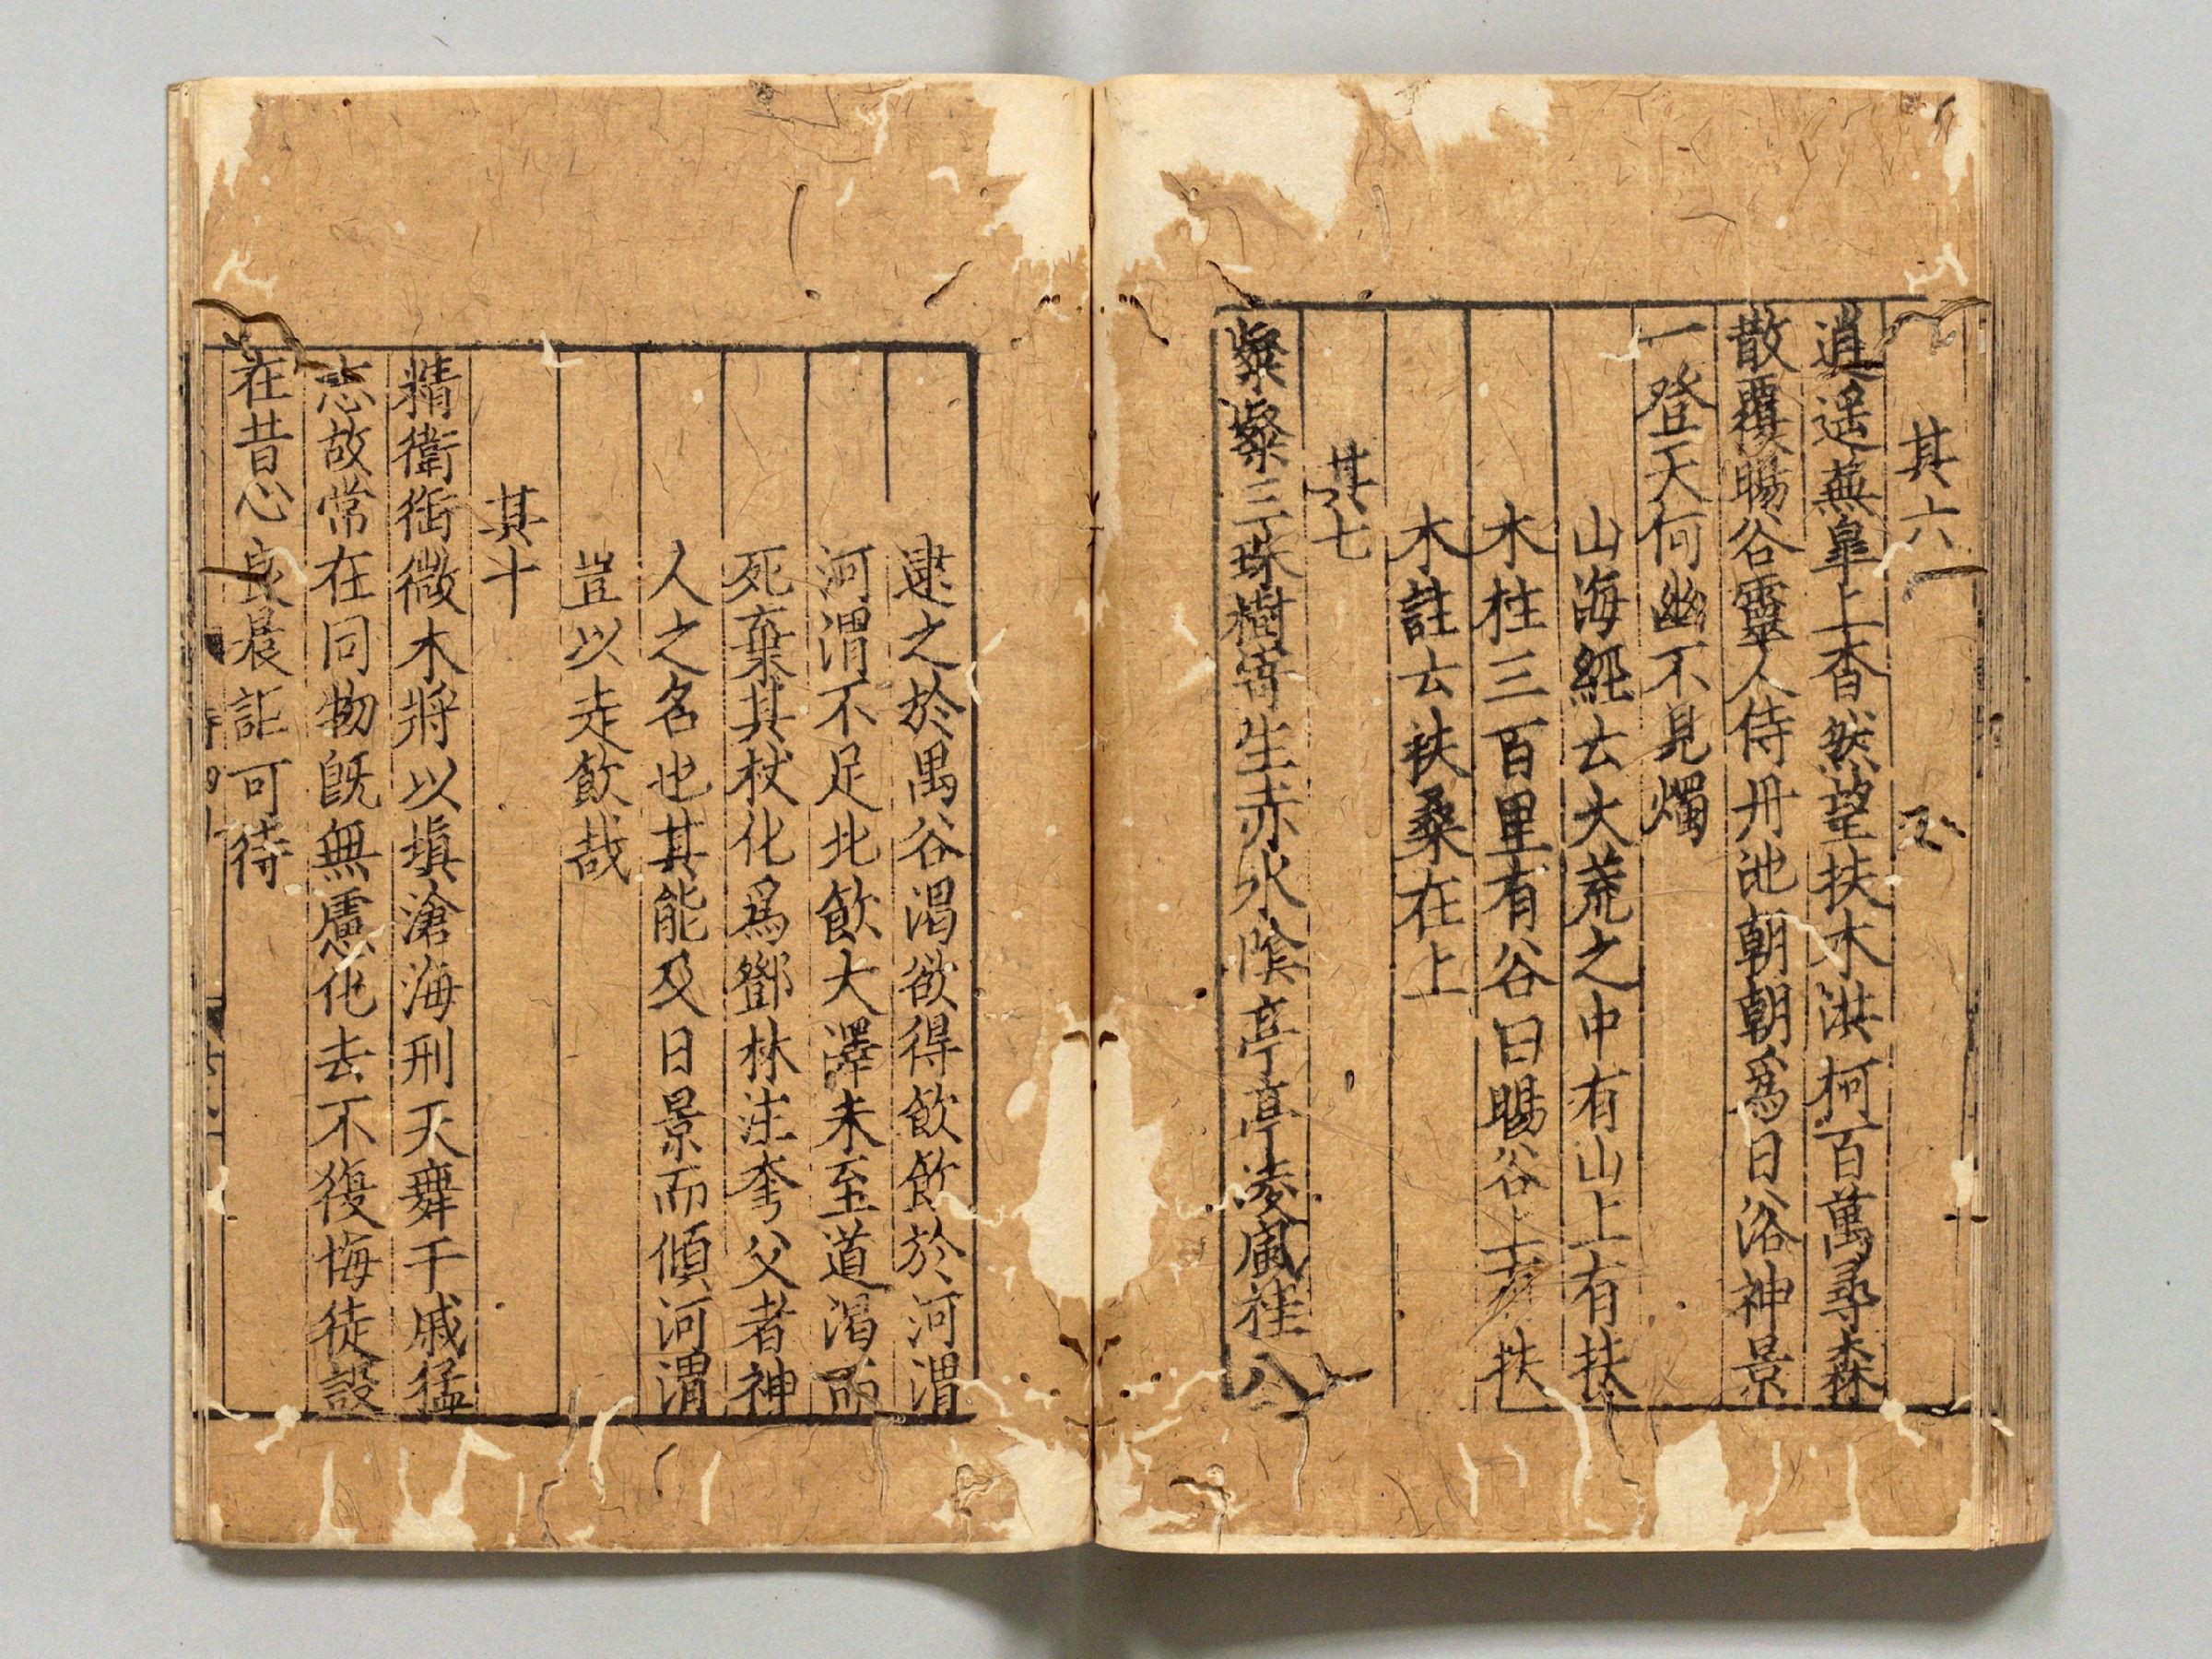 其六
逍遥蕪皐上杳然望扶木洪柯百萬尋森
散覆暘谷靈人侍丹池朝朝爲日浴神景
一登天何幽不見燭
山海經云大荒之中有山上有扶
木柱三百里有谷曰暘谷上有扶
木註云扶桑在上
其七
粲粲三珠樹寄生赤水陰亭亭凌風桂八
逮之於禺谷渴欲得飲飲於河渭
河渭不足北飲大澤未至道渴而
死棄其杖化爲鄧林注夸父者神
人之名也其能及日景而傾河渭
豈以走飲哉
其十
精衛銜微木將以塡滄海刑天舞干戚猛
志故常在同物旣無慮化去不復悔徒設
在昔心良晨詎可待